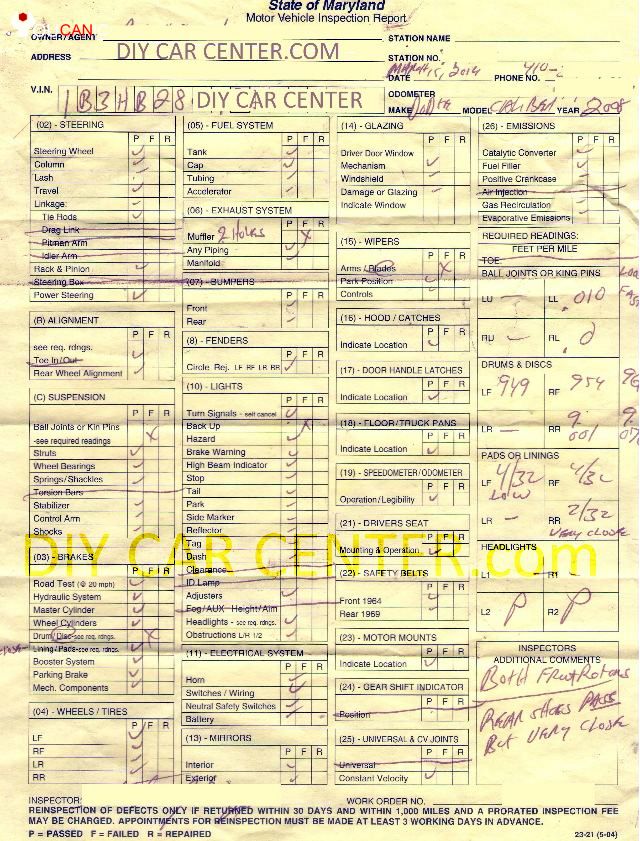 State of Maryland
Motor Vehicle Inspection Report
CAN
OWNER/AGENT
STATION NAME
ADDRESS
DIY CAR CENTER.COM
STATION NO.
DATE
MARCH 15, 2014
PHONE NO.
410-
V.I.N.
1B3HB28
DIY CAR CENTER
ODOMETER
MAKE
MODEL
YEAR
2008
(02) - STEERING
P F R
Steering Wheel
Column
Lash
Travel
Linkage:
Tie Rods
Drag Link
Pitman Arm
Idler Arm
Rack & Pinion
Steering Box
Power Steering
(B) ALIGNMENT
P F R
see req. rdngs.
Toe In/Out
Rear Wheel Alignment
(C) SUSPENSION
P F R
Ball Joints or Kin Pins
-see required readings
Struts
Wheel Bearings
Springs/Shackles
Torsion Bars
Stabilizer
Control Arm
Shocks
(03) - BRAKES
P F R
Road Test (@ 20 mph)
Hydraulic System
Master Cylinder
Wheel Cylinders
Drum/Disc-see req. rdngs.
Lining/Pads-see req. rdngs.
Booster System
Parking Brake
Mech. Components
(04) - WHEELS / TIRES
P F R
LF
RF
LR
RR
(05) - FUEL SYSTEM
P F R
Tank
Cap
Tubing
Accelerator
(06) - EXHAUST SYSTEM
P F R
Muffler 2 Holes
Any Piping
Manifold
(07) - BUMPERS
P F R
Front
Rear
(8) - FENDERS
P F R
Circle Rej. LF RF LR RR
(10) - LIGHTS
P F R
Turn Signals - self cancel
Back Up
Hazard
Brake Warning
High Beam Indicator
Stop
Tail
Park
Side Marker
Reflector
Tag
Dash
Clearance
ID Lamp
Adjusters
Fog/AUX Height/Aim
Headlights - see req. rdngs.
Obstructions L/R 1/2
(11) - ELECTRICAL SYSTEM
P F R
Horn
Switches / Wiring
Neutral Safety Switches
Battery
(13) - MIRRORS
P F R
Interior
Exterior
(14) - GLAZING
P F R
Driver Door Window
Mechanism
Windshield
Damage or Glazing
Indicate Window
(15) - WIPERS
P F R
Arms / Blades
Park Position
Controls
(16) - HOOD / CATCHES
P F R
Indicate Location
(17) - DOOR HANDLE LATCHES
P F R
Indicate Location
(18) - FLOOR/TRUCK PANS
P F R
Indicate Location
(19) - SPEEDOMETER/ODOMETER
P F R
Operation/Legibility
(21) - DRIVERS SEAT
P F R
Mounting & Operation
(22) - SAFETY BELTS
P F R
Front 1964
Rear 1969
(23) - MOTOR MOUNTS
P F R
Indicate Location
(24) - GEAR SHIFT INDICATOR
P F R
Position
(25) - UNIVERSAL & CV JOINTS
P F R
Universal
Constant Velocity
(26) - EMISSIONS
P F R
Catalytic Converter
Fuel Filler
Positive Crankcase
Air Injection
Gas Recirculation
Evaporative Emissions
REQUIRED READINGS:
FEET PER MILE
TOE:
BALL JOINTS OR KING PINS
LU -
LL .010
RU -
RL
DRUMS & DISCS
LF 949
RF 954
LR -
RR 9.001
PADS OR LININGS
LF 4/32 LOW
RF 4/32
LR -
RR 2/32
VERY CLOSE
HEADLIGHTS
L1
R1
L2 P
R2 P
INSPECTORS
ADDITIONAL COMMENTS
Both Front Rotors
REAR SHOES PASS
But VERY CLOSE
DIY CAR CENTER.com
INSPECTOR:
WORK ORDER NO.
REINSPECTION OF DEFECTS ONLY IF RETURNED WITHIN 30 DAYS AND WITHIN 1,000 MILES AND A PRORATED INSPECTION FEE
MAY BE CHARGED. APPOINTMENTS FOR REINSPECTION MUST BE MADE AT LEAST 3 WORKING DAYS IN ADVANCE.
P = PASSED F = FAILED R = REPAIRED
23-21 (5-04)